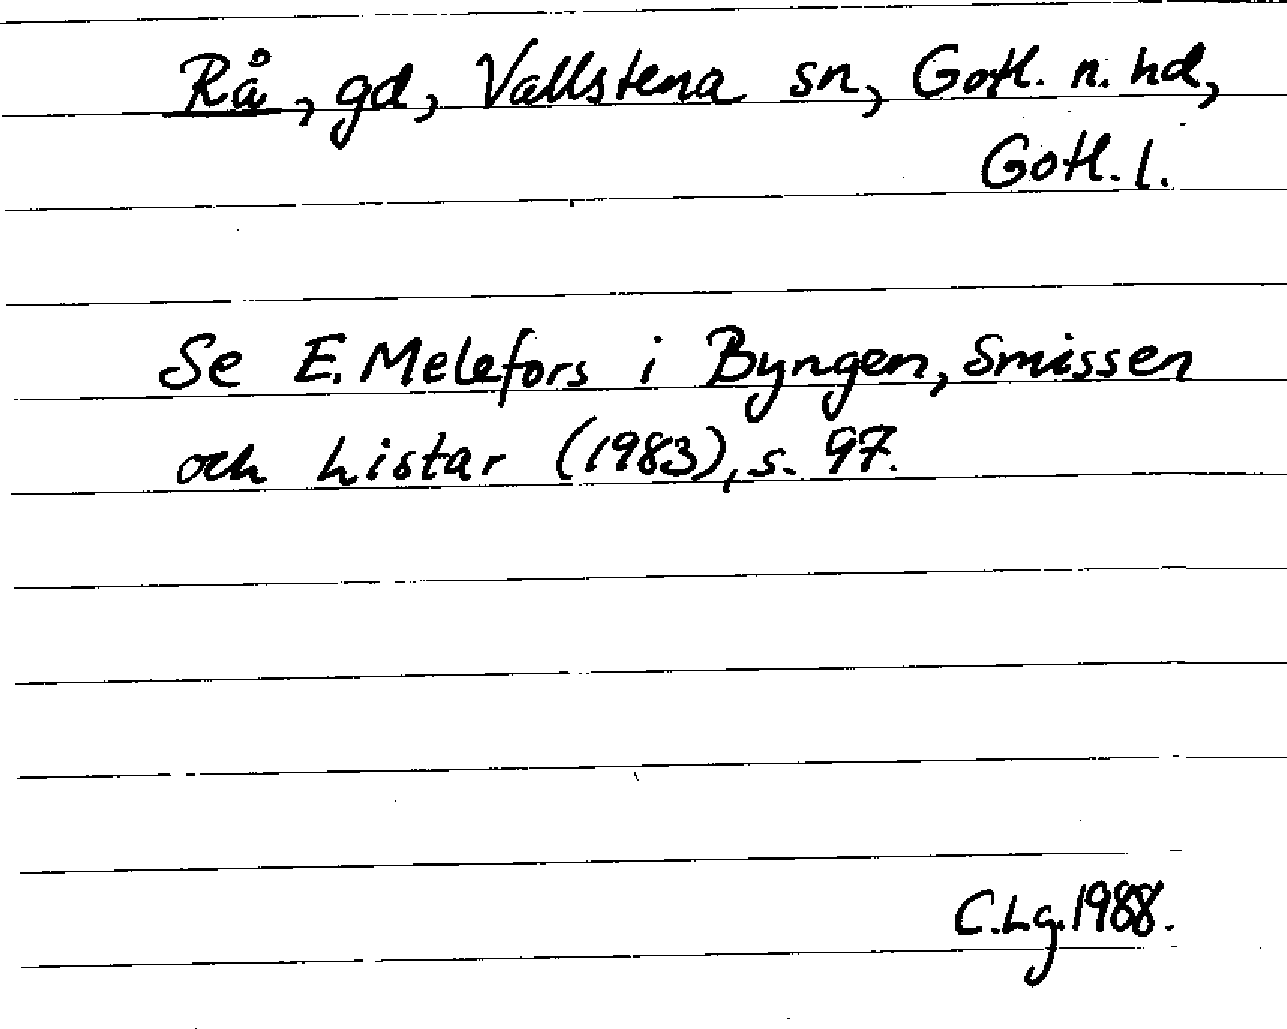 Rå, gd, Vallstena sn, Gotl. n. hd,
Gotl. l.
Se E. Melefors i Byngen, Smissen
och Listar (1983), s. 97.
C.Lg. 1988.